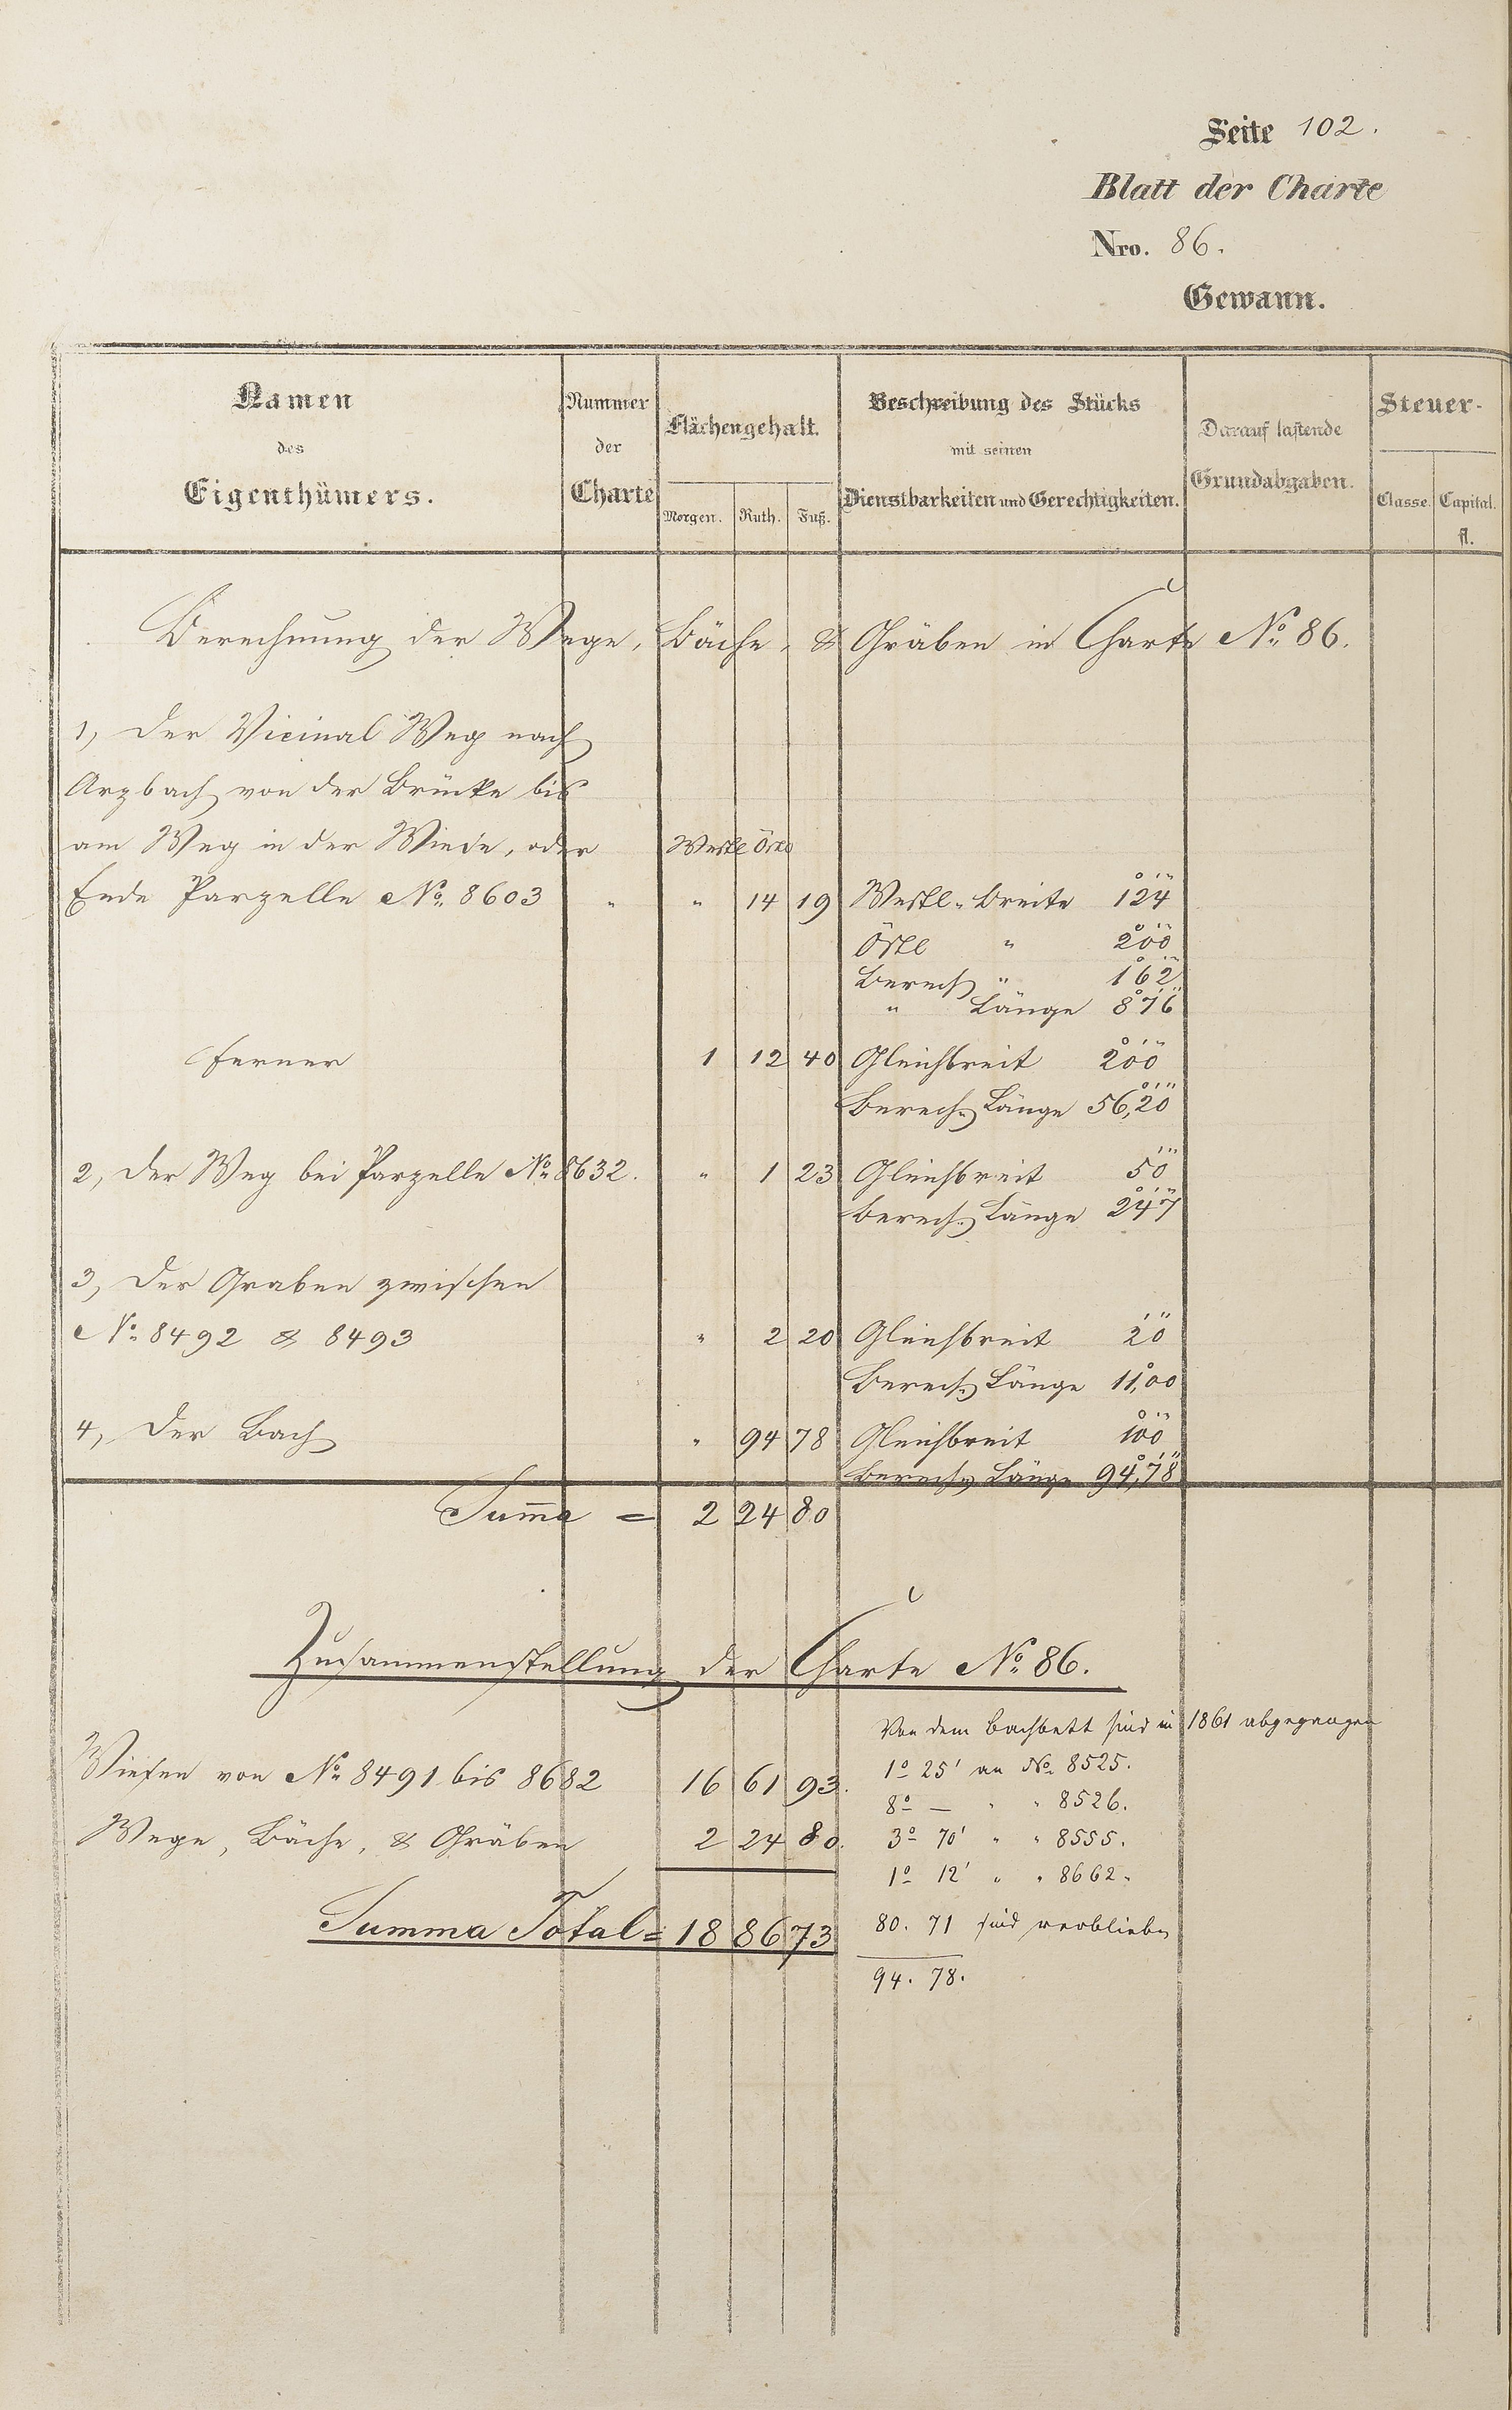 Seite 102.
Blatt der Charte
Nro. 86.
Gewann.
Namen des Eigenthümers.
Nummer der Charte
Flächengehalt.
Morgen. Ruth. Fuß.
Beschreibung des Stücks mit seinen Dienstbarkeiten und Gerechtigkeiten.
Darauf lastende Grundabgaben.
Steuer-
Classe. Capital. fl.
Berechnung der Wege, Bäche, & Gräben in Charte No. 86.
1, Der Vicinal Weg nach
Arzbach von der Brücke bis
am Weg in der Wiese, oder Westl Östl
Ende Parzelle No. 8603 " " 14 19 Westl. Breite 1°2'4"
Östl " 2°0'0"
Berech " 1°6'2"
" Länge 8°7'6"
Ferner 1 12 40 Gleichbreit 2°0'0"
Berech. Länge 56,°2'0"
2, Der Weg bei Parzelle No. 8632. " 1 23 Gleichbreit 5'0"
Berech. Länge 2°4'7"
3, Der Graben zwischen
No. 8492 & 8493 " 2 20 Gleichbreit 2'0"
Berech. Länge 11,°00
4, Der Bach " 94 78 Gleichbreit 1°0'0"
Berech. Länge 94,°7'8"
Sum̄a = 2 24 80
Zusammenstellung der Charte No. 86.
Von dem Bachbett sind in 1861 abgegangen
Wiesen von No. 8491 bis 8682 16 61 93. 1° 25' an No. 8525.
8° — " " 8526.
Wege, Bäche, & Gräben 2 24 80. 3° 70' " " 8555.
1° 12' " " 8662.
Summa Total = 18 86 73 80. 71 sind verblieben
94. 78.